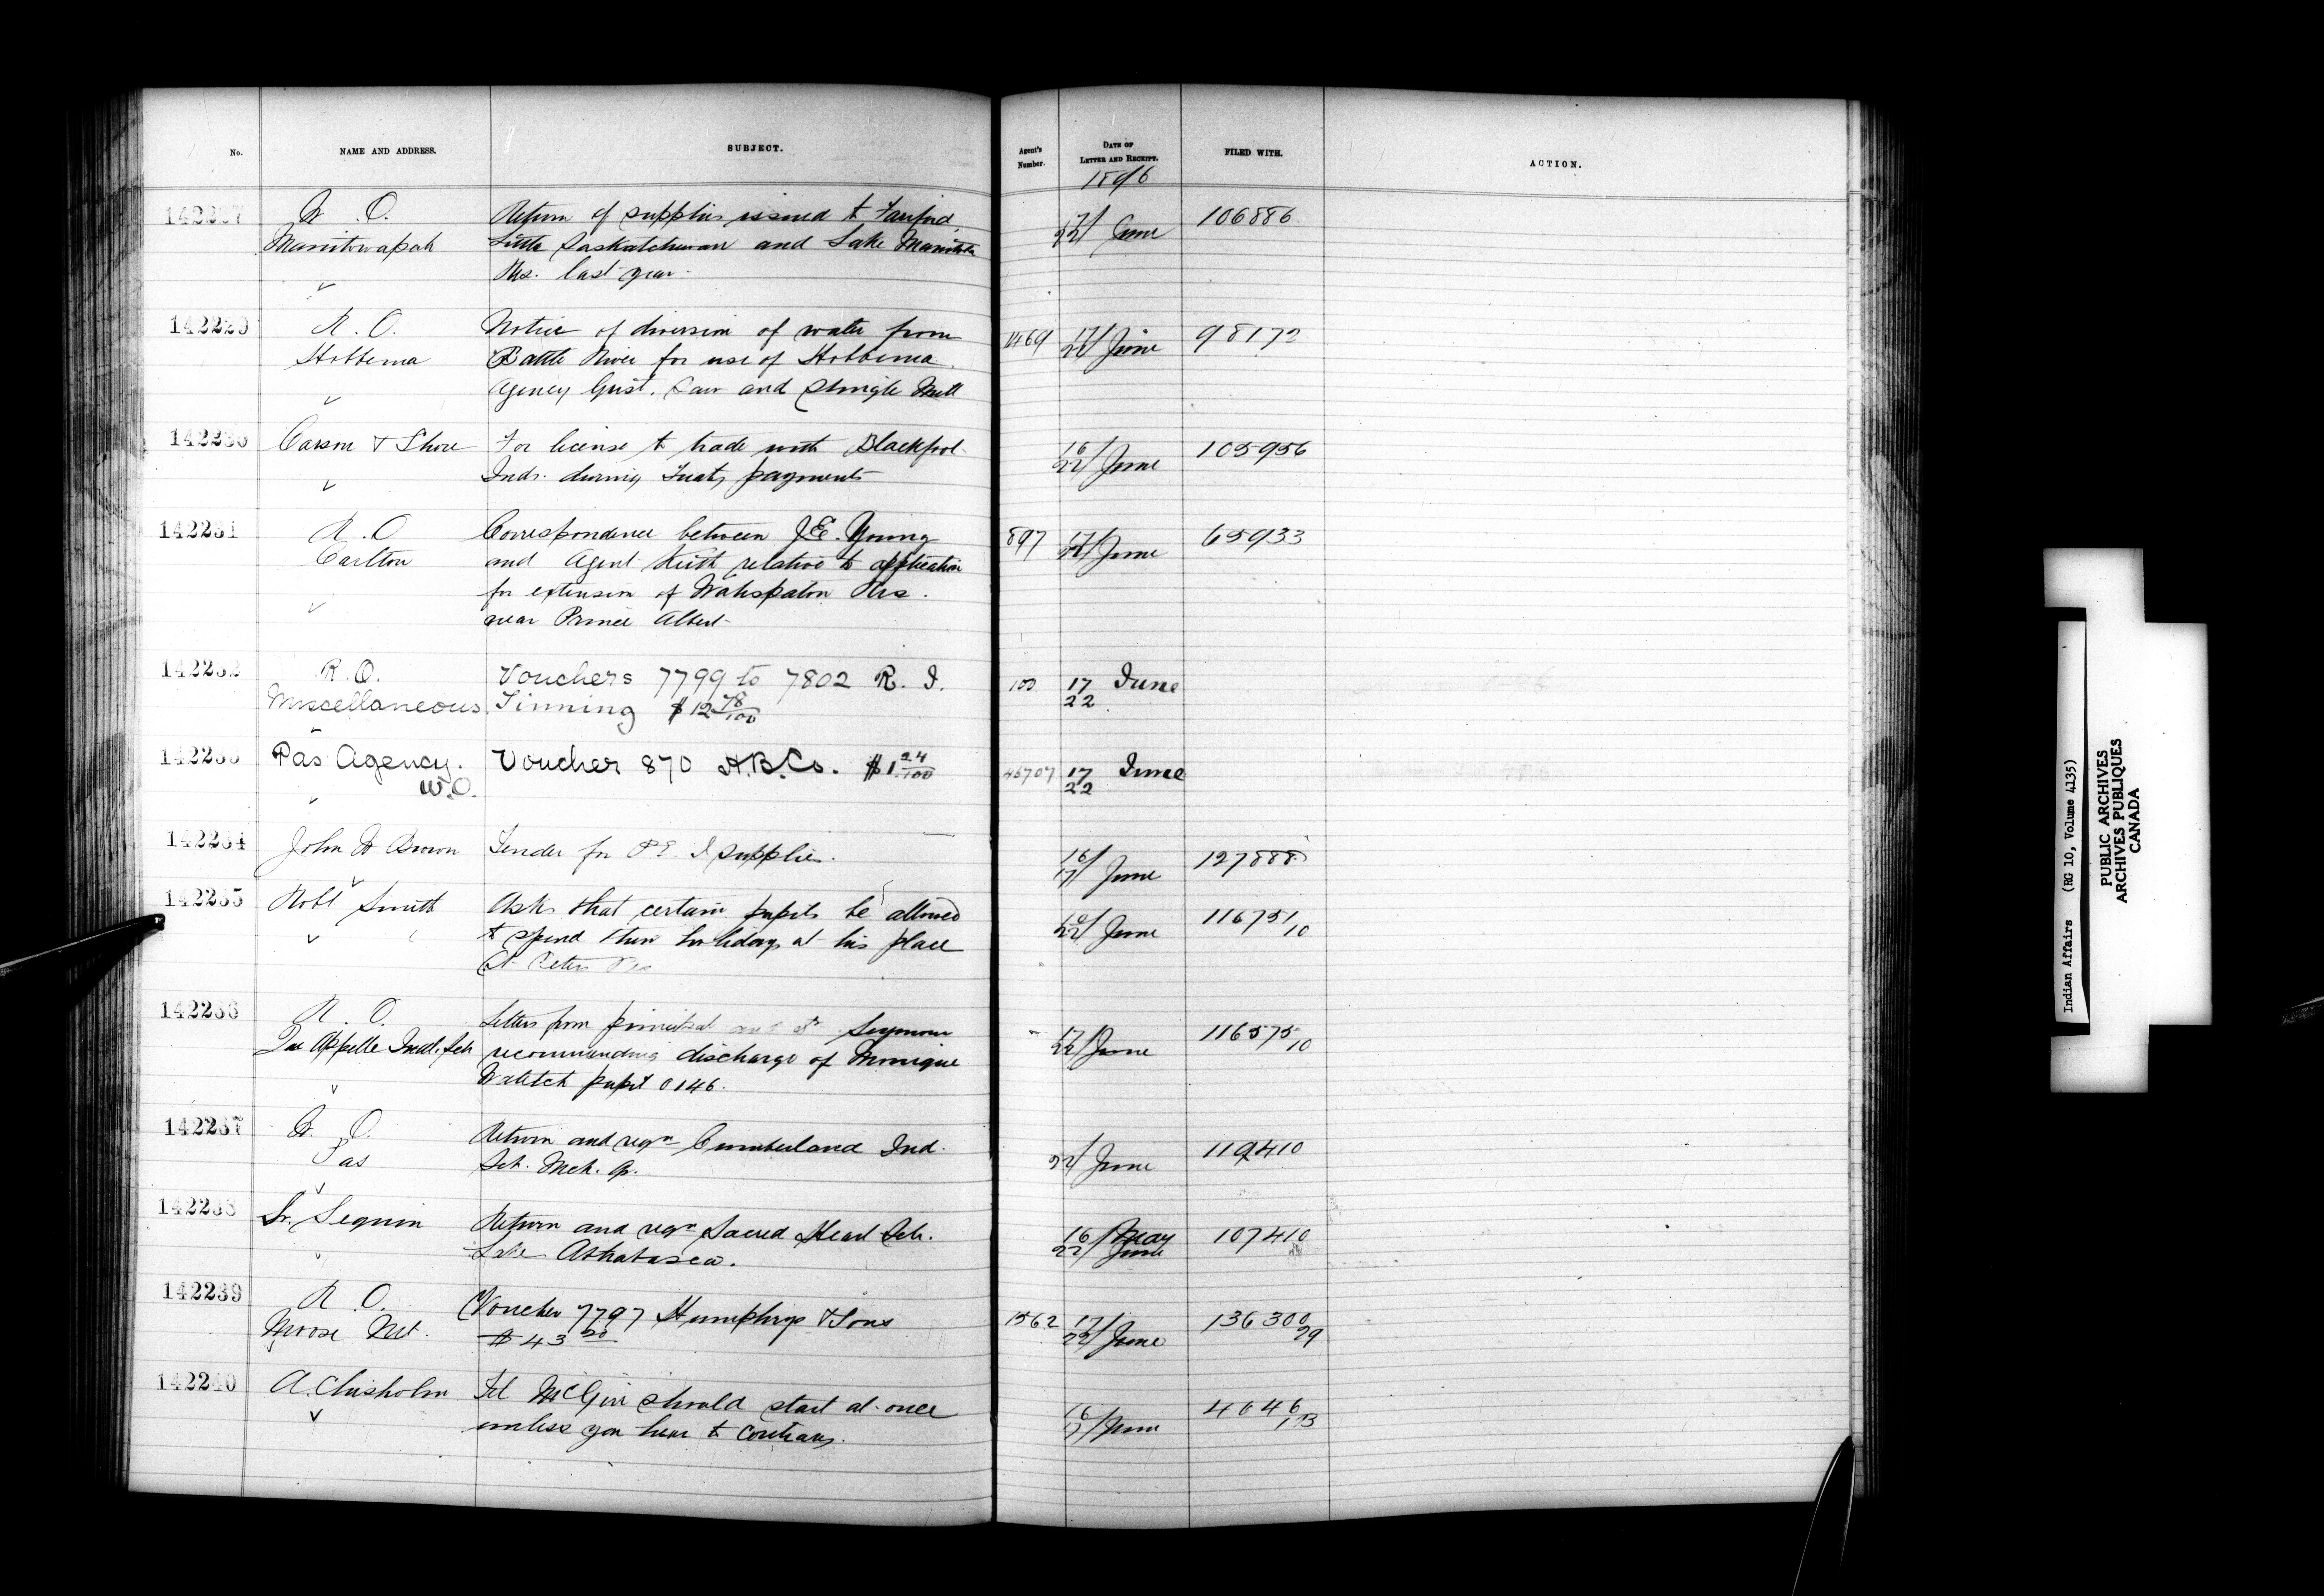 No. NAME AND ADDRESS. SUBJECT. Agent's Number. DATE OF LETTER AND RECEIPT. FILED WITH. ACTION.
1896
142227 W. O. Return of supplies issued to Fairford, 17/22 June 106886
Manitowapah Little Saskatchewan and Lake Manitoba
Rs. last year
142229 R. O. Notice of diversion of water from 1469 17/22 June 98172
Hobbema Battle River for use of Hobbema
Agency Grist, Saw and Shingle Mill
142230 Carson & Shore For license to trade with Blackfoot 16/22 June 105956
Inds. during Treaty payments
142231 R. O Correspondence between J.E. Young 897 17/22 June 65933
Carlton and Agent Keith relative to application
for extension of Wahspaton Res.
near Prince Albert
142232 R. O. Vouchers 7799 to 7802 R. I. 100 17 June
Miscellaneous. Tinning $12 78/100 22
142233 Pas Agency. Voucher 870 H.B.Co. $1 24/100 46707 17 June
W.O. 22
142234 John W Brown Tender for P.E.I supplies. 16/17 June 127888
142235 Robt Smith Asks that certain pupils be allowed 22 June 116751/10
to spend their holidays at his place
St Peters Res
142236 R. O. Letters from principal and Dr Seymour 17/22 June 116575/10
Qu Appelle Indl. Sch recommending discharge of Monique
pupil 0146.
142237 W. O. Return and reqn Cumberland Ind. 22/ June 119410
Pas Sch. Mch. Qr.
142238 Sr. Seguin Return and reqn Sacred Heart Sch. 16/ May 107410
Lake Athabasca. 22/ June
142239 R. O. Voucher 7797 Humphrys & Sons 1562 17/22 June 136300/29
Moose Mt. $43 50
142240 A. Chisholm Tel McGirr should start at once 16/17 June 4646/1B
unless you hear to contrary.
Indian Affairs (RG 10, Volume 4135)
PUBLIC ARCHIVES
ARCHIVES PUBLIQUES
CANADA